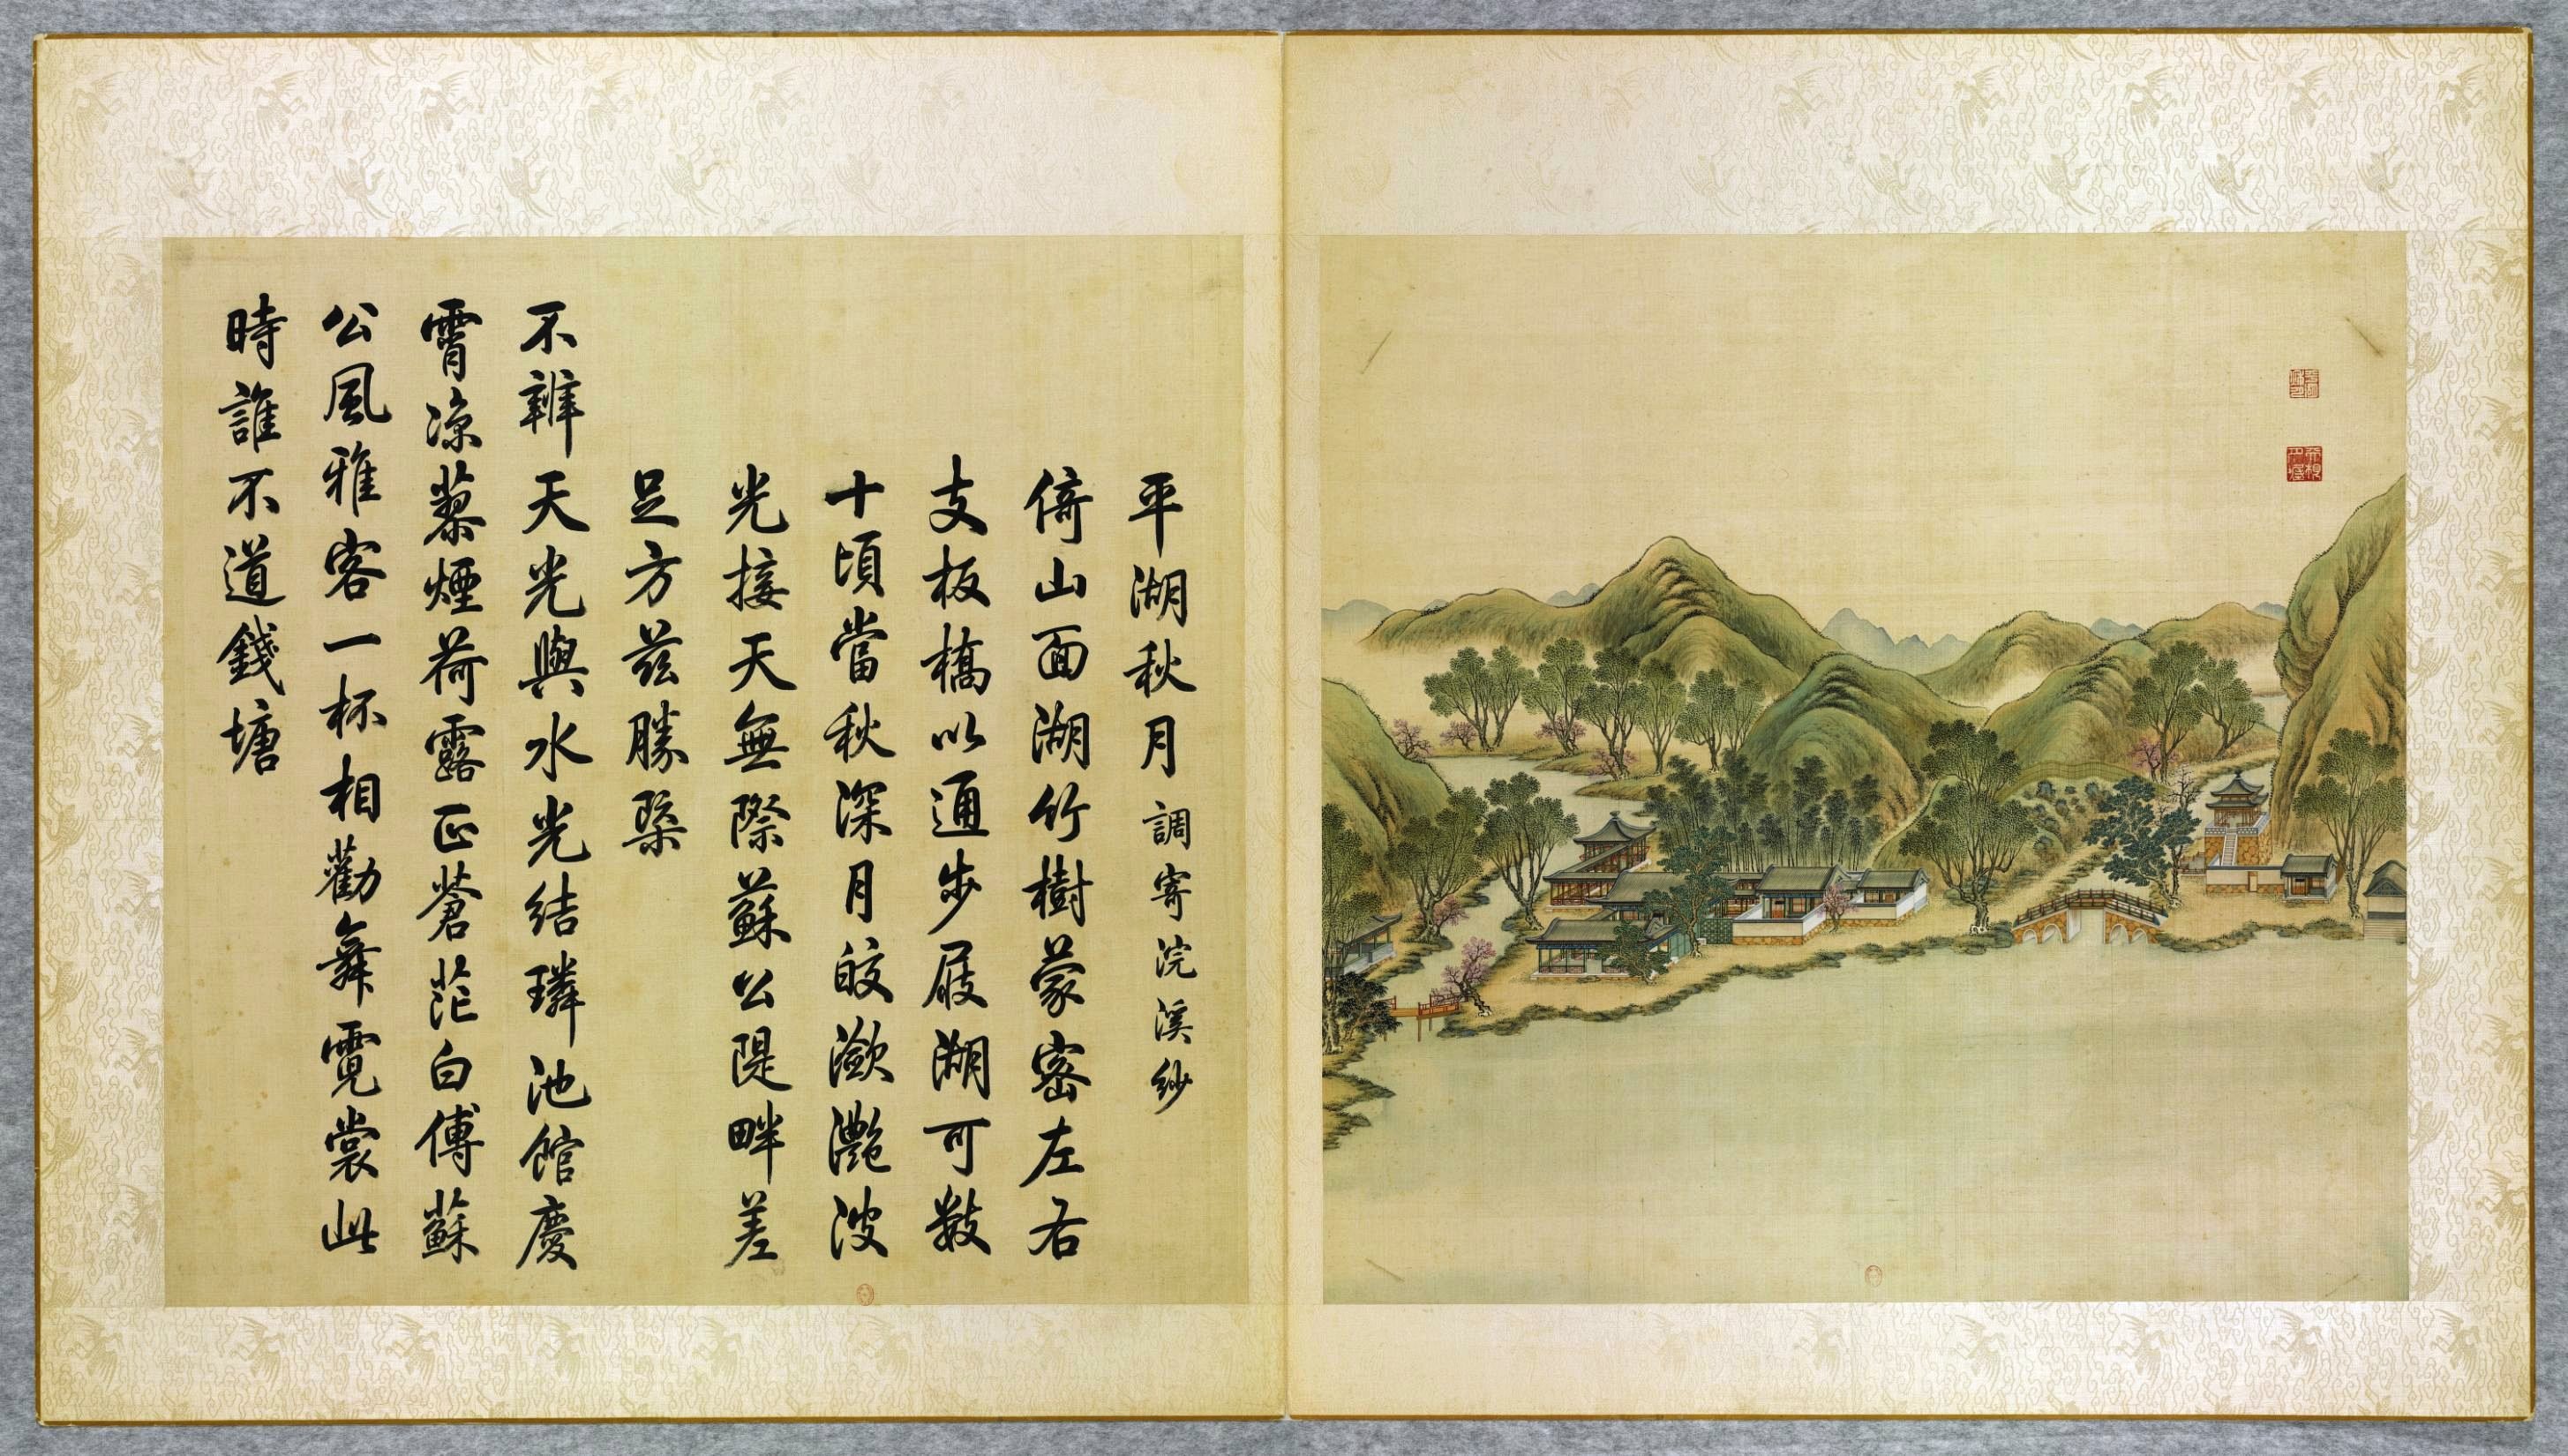 平湖秋月 調寄浣溪紗
倚山面湖竹樹蒙密左右
支板橋以通步屐湖可數
十頃當秋深月皎瀲灩波
光接天無際蘇公隄畔差
足方茲勝槩
不辨天光與水光結璘池館慶
霄凉蓼煙荷露正蒼茫白傅蘇
公風雅客一杯相勸舞霓裳此
時誰不道錢塘